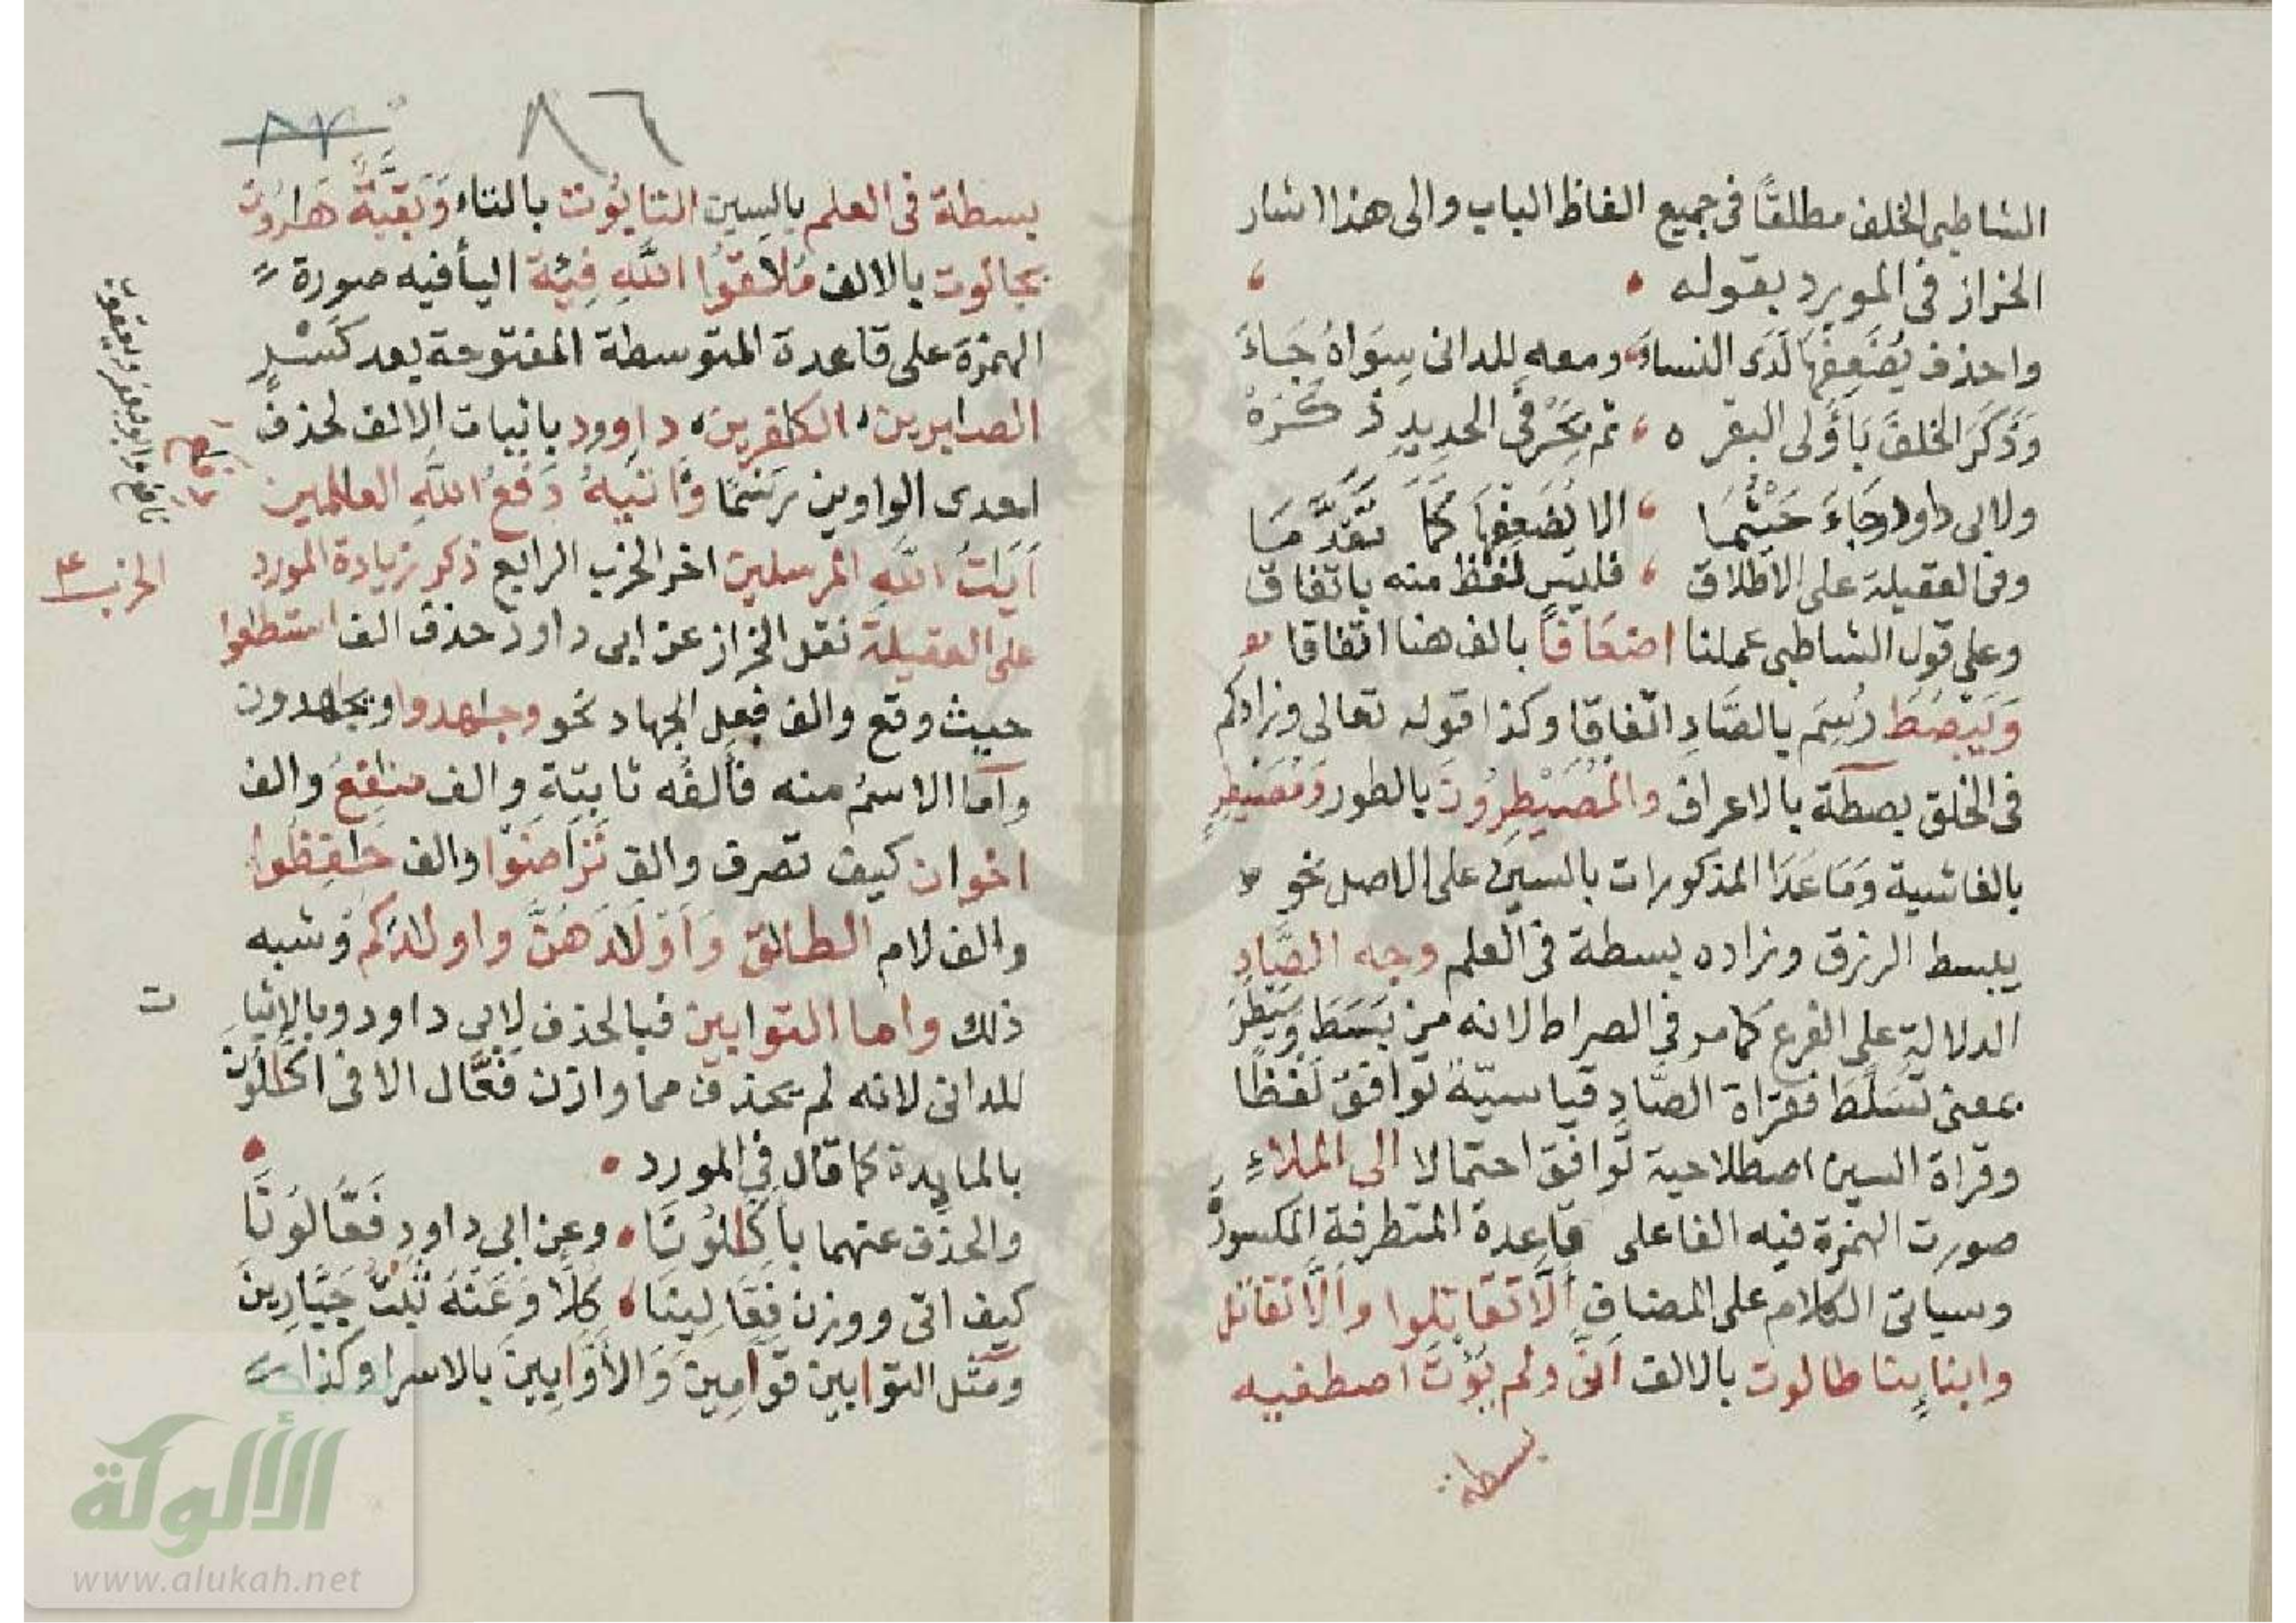 الشاطبي الخلف مطلقًا في جميع الفاظ الباب والى هذا اشار
الخراز في المورد بقوله
واحذف يُضَعِفْهَا لَدَى النساءِ ومعه للدانى سِوَاهُ جَاءَ
وَذَكَرَ الخلفَ بَأُولى البقره ثم بِحَرْفَي الحديدِ ذَكَرَهْ
ولابى داود جَاءَ حَيْثُمَا الا يُضَعِفْهَا كَمَا تَقَدَّمَا
وفى العقيلة على الاطلاق فليس لفظ منه باتفاق
وعلى قول الشاطبى عملنا اضعَافًا بالف هنا اتفاقا
وَيَبْصُطَ رُسِمَ بالصَّادِ اتفاقا وكذا قوله تعالى وزادكم
فى الخلق بصطة بالاعراف والمُصَيْطِرُونَ بالطور وَمُصَيْطِرٍ
بالغاشية وَمَا عَدَا المذكورات بالسين على الاصل نحو
يبسط الرزق وزاده بسطة فى العلم وجه الصَّادِ
الدلالة على الفرع كما مر في الصراط لانه من بَسَطَ وَسَيْطَرَ
بمعنى تَسَلَّطَ فقراة الصَّادِ قياسيّة توافق لَفظًا
وقراة السين اصطلاحية توافق احتمالا الى الملاءِ
صورت الهمزة فيه الفا على قاعدة المتطرفة المكسورة
وسياتى الكلام على المضاف أَلَّا تقاتلوا وألَّا نقاتل
وابنايِنا طالوت بالالف أنى ولم يُؤْتَ اصطفيه
بسطة
٨٦
٨٣
بسطة فى العلم بالسين التابُوت بالتاء وَبَقِيَّةٌ هَارُون
بجالوت بالالف مُلاقُوا اللهِ فِئَة اليأ فيه صورة
الهمزة على قاعدة المتوسطة المفتوحة بعد كَسْرٍ
الصابرين الكافرين داوود باثبات الالف لحذف
احدى الواوين رَسْمًا وَاتيهُ دَفْعُ اللهِ العالمين
آيَاتُ اللهِ المرسلين اخر الحزب الرابع ذكر زيادة المورد
على العقيلة نقل الخراز عن ابى داود حذف الف استطعوا
حيث وقع والف فِعل الجهاد نحو وجاهدوا ويجاهدون
وامّا الاسمُ منه فأَلفُه ثابتة والف منافعُ والف
اخوان كيف تصرف والف تَرَاضَوْا والف حَافِظُوا
والف لام الطلاق وَأَوْلَادَهُنَّ واولادكم وشبه
ذلك واما التوابين فبالحذف لابي داود وبالاثبات
للدانى لانه لم يحذف مما وازن فَعَّال الا فى اكّالُونَ
بالمايدة كما قال في المورد
والحذف عنهما بأكَّالُونَا وعن ابي داود فَعَّالُونَا
كيف اتى ووزن فَعَّالِينَا كُلًّا وَعَنْهُ ثَبْتُ جَبَّارِينَا
ومثل التوابين قَوَّامِينَ وَالأَوَّابِينَ بالاسرا وكذا
نافع
الحزب ٤
الألوكة
www.alukah.net